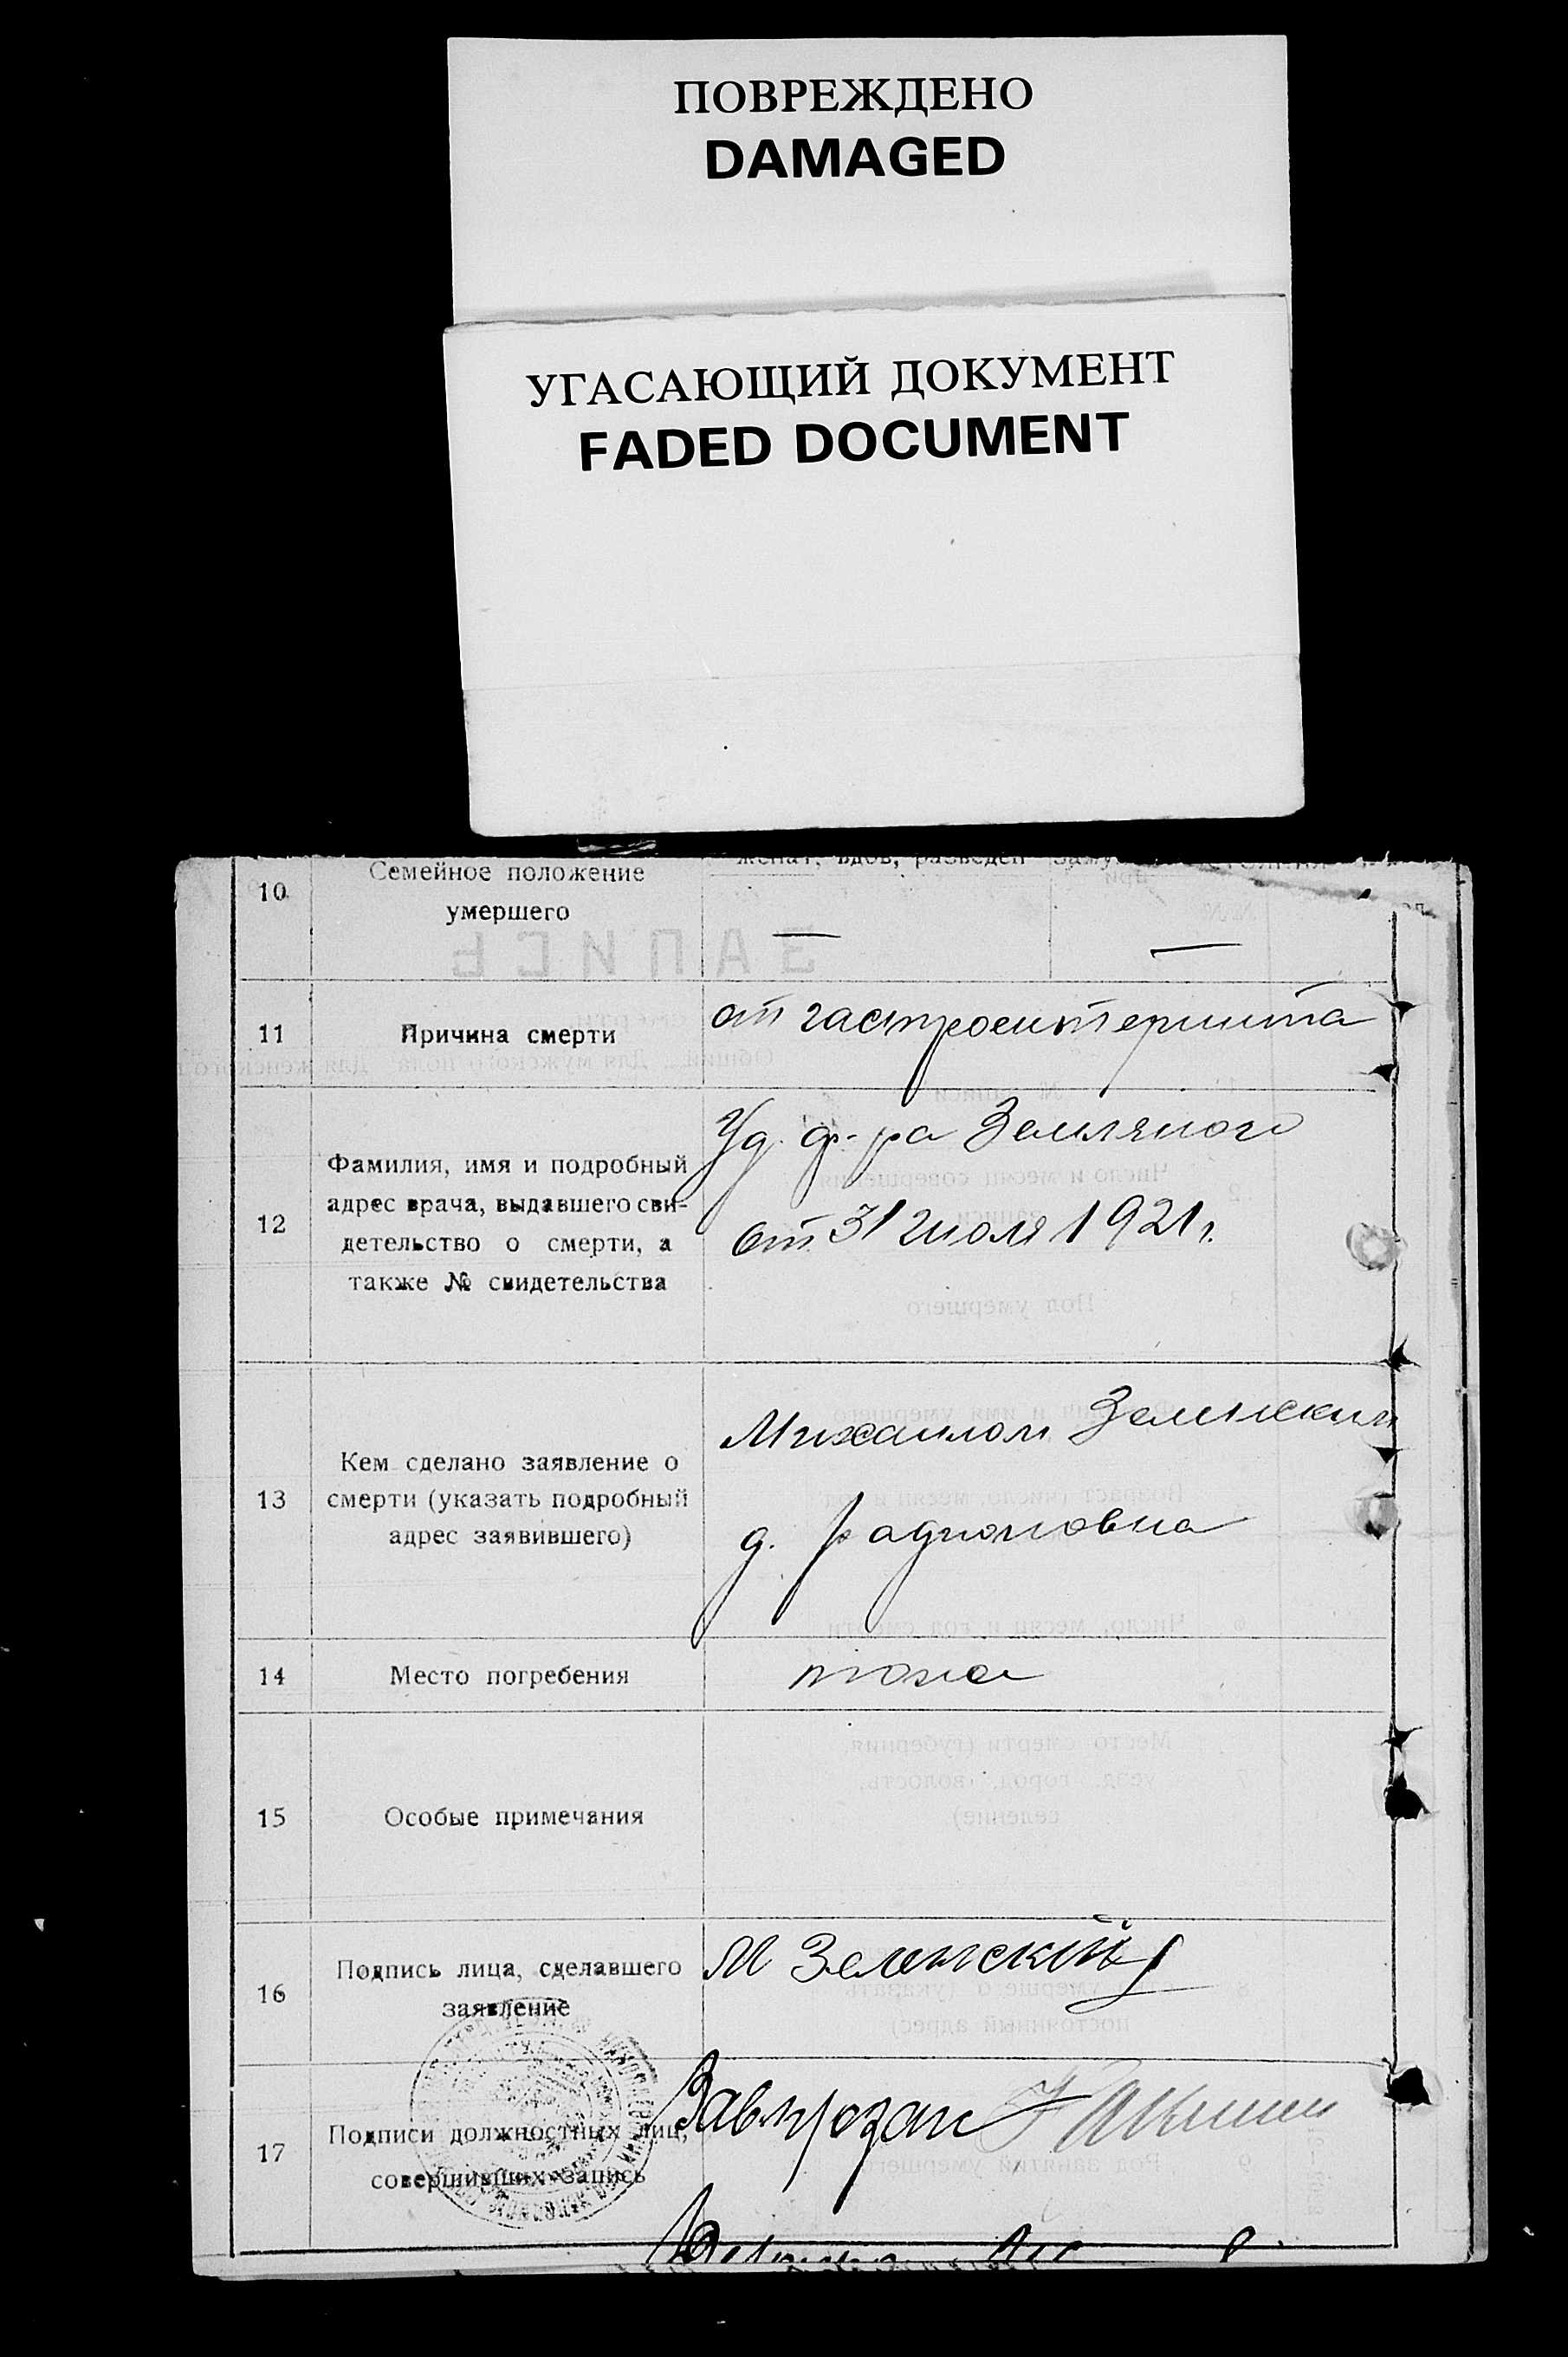 ПОВРЕЖДЕНО
DAMAGED
УГАСАЮЩИЙ ДОКУМЕНТ
FADED DOCUMENT
10
Семейное положение
умершего
женат, вдов, разведен
—
—
11
Причина смерти
от гастроентеринта
12
Фамилия, имя и подробный
адрес врача, выдавшего сви-
детельство о смерти, а
также № свидетельства
Уд. ф-ра Земляного
от 31 июля 1921 г.
13
Кем сделано заявление о
смерти (указать подробный
адрес заявившего)
Михаилом Зеленским
д. Радионовка
14
Место погребения
15
Особые примечания
16
Подпись лица, сделавшего
заявление
М Зеленский
17
Подписи должностных лиц,
совершивших запись